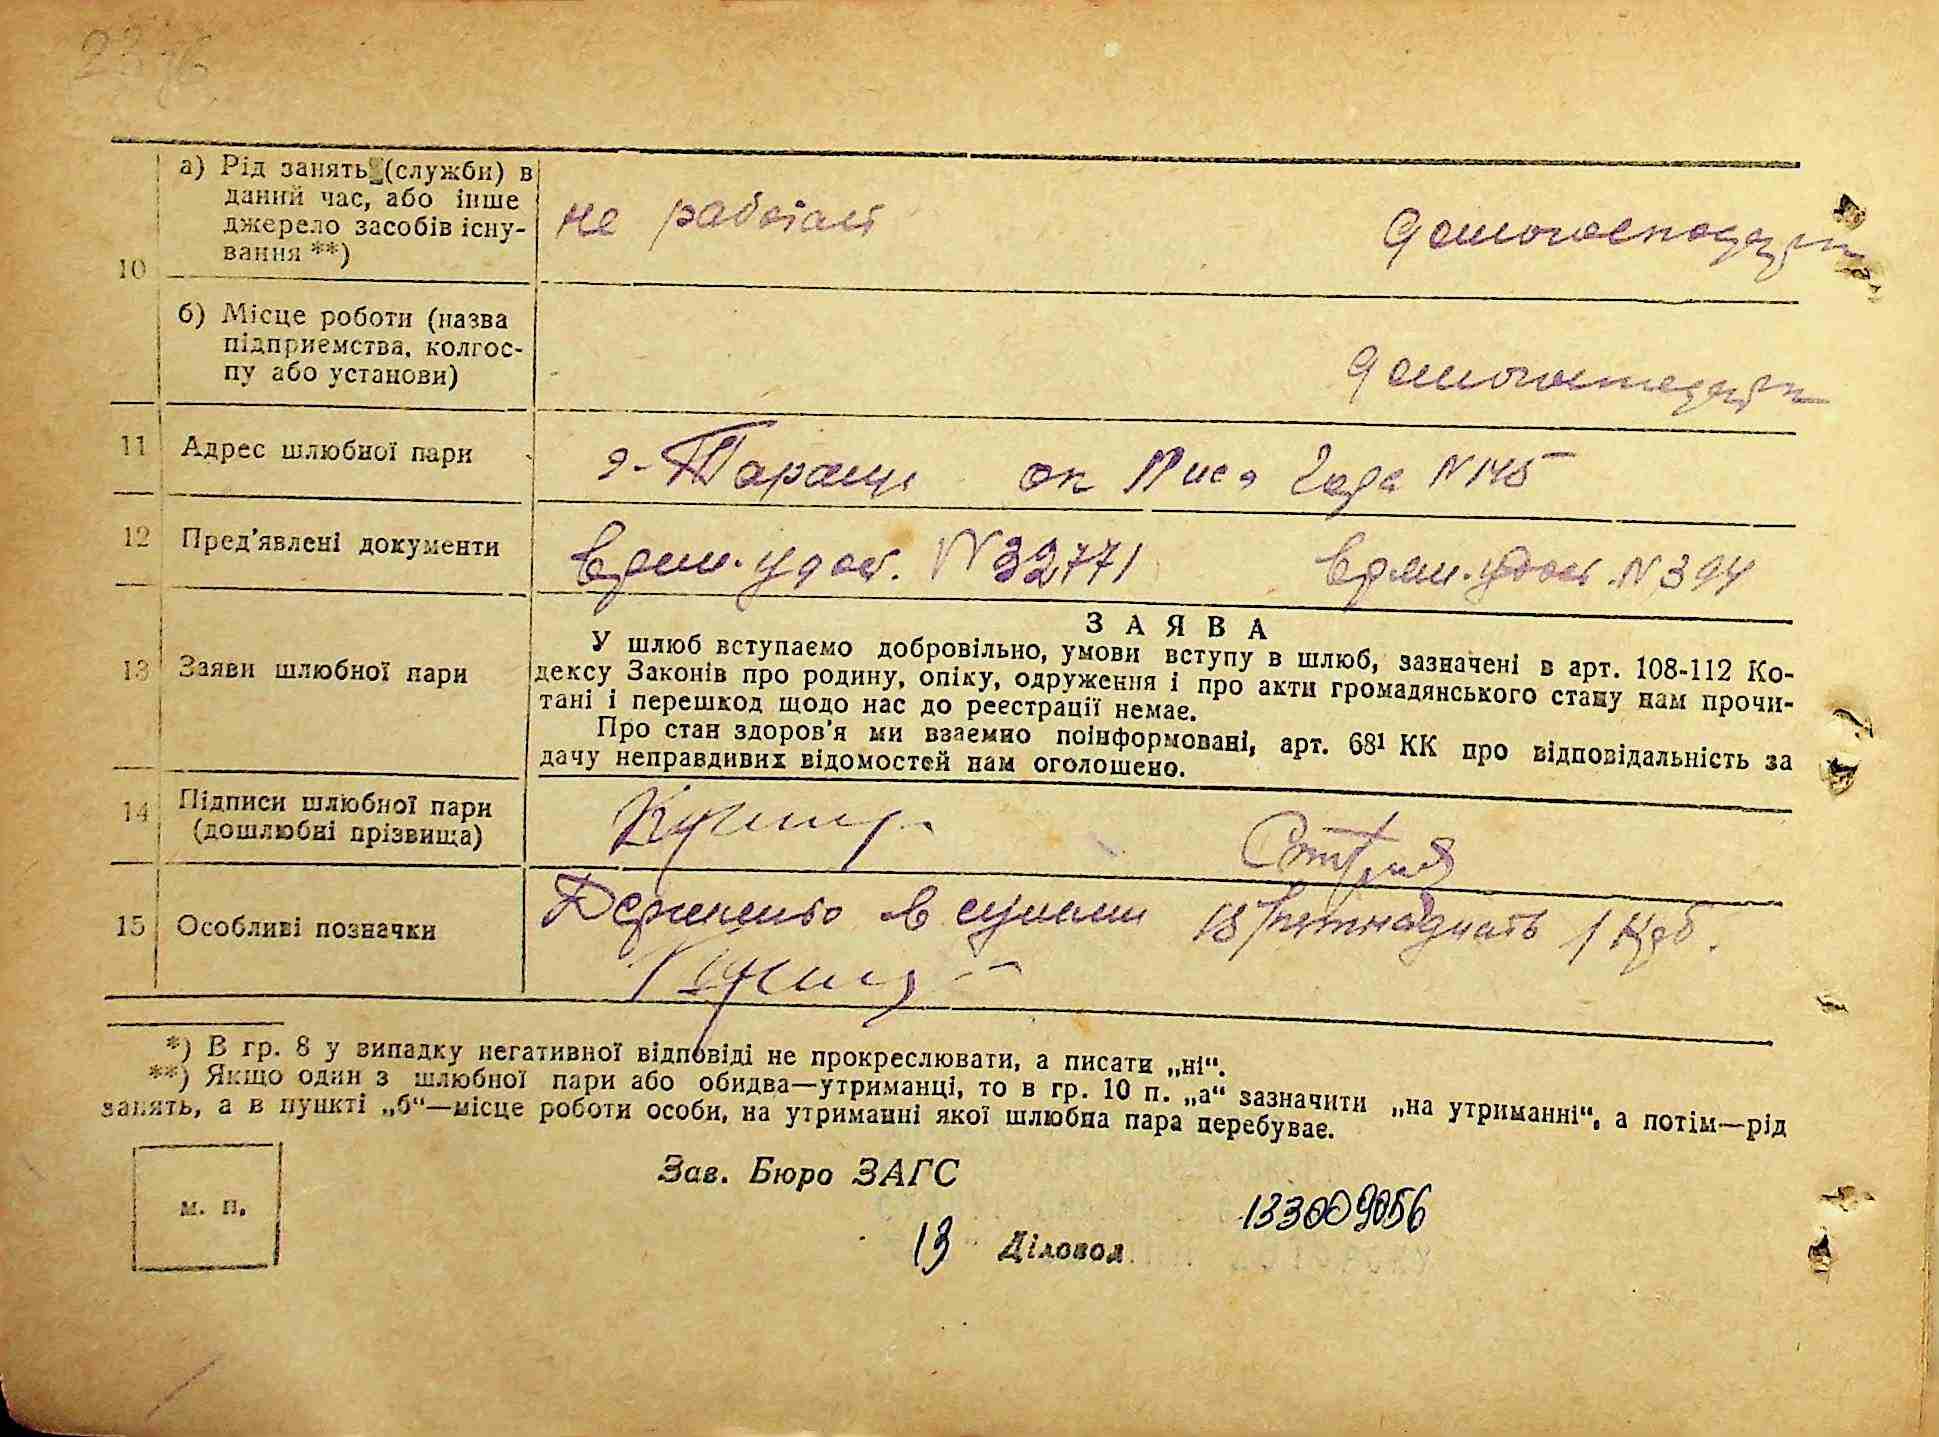 10
а) Рід занять (службы) в
даний час, або інше
джерело засобів існу-
вання **)
не работает
б) Місце роботи (назва
підприємства, колгос-
пу або установи)
11 Адрес шлюбної пари
N 145
12 Пред'явлені документи
удост. N 32771
удост. N 394
13 Заяви шлюбної пари
ЗАЯВА
У шлюб вступаємо добровільно, умови вступу в шлюб, зазначені в арт. 108-112 Ко-
дексу Законів про родину, опіку, одруження і про акти громадянського стану нам прочи-
тані і перешкод щодо нас до реєстрації немає.
Про стан здоров'я ми взаємно поінформовані, арт. 68¹ КК про відповідальність за
дачу неправдивих відомостей нам оголошено.
14 Підписи шлюбної пари
(дошлюбні прізвища)
15 Особливі позначки
в сумме 15 /пятнадцать/ крб.
*) В гр. 8 у випадку негативної відповіді не прокреслювати, а писати „ні“.
**) Якщо один з шлюбної пари або обидва—утриманці, то в гр. 10 п. „а“ зазначити „на утриманні“, а потім—рід
занять, а в пункті „б“—місце роботи особи, на утриманні якої шлюбна пара перебуває.
м. п.
Зав. Бюро ЗАГС
133009056
13 Діловод